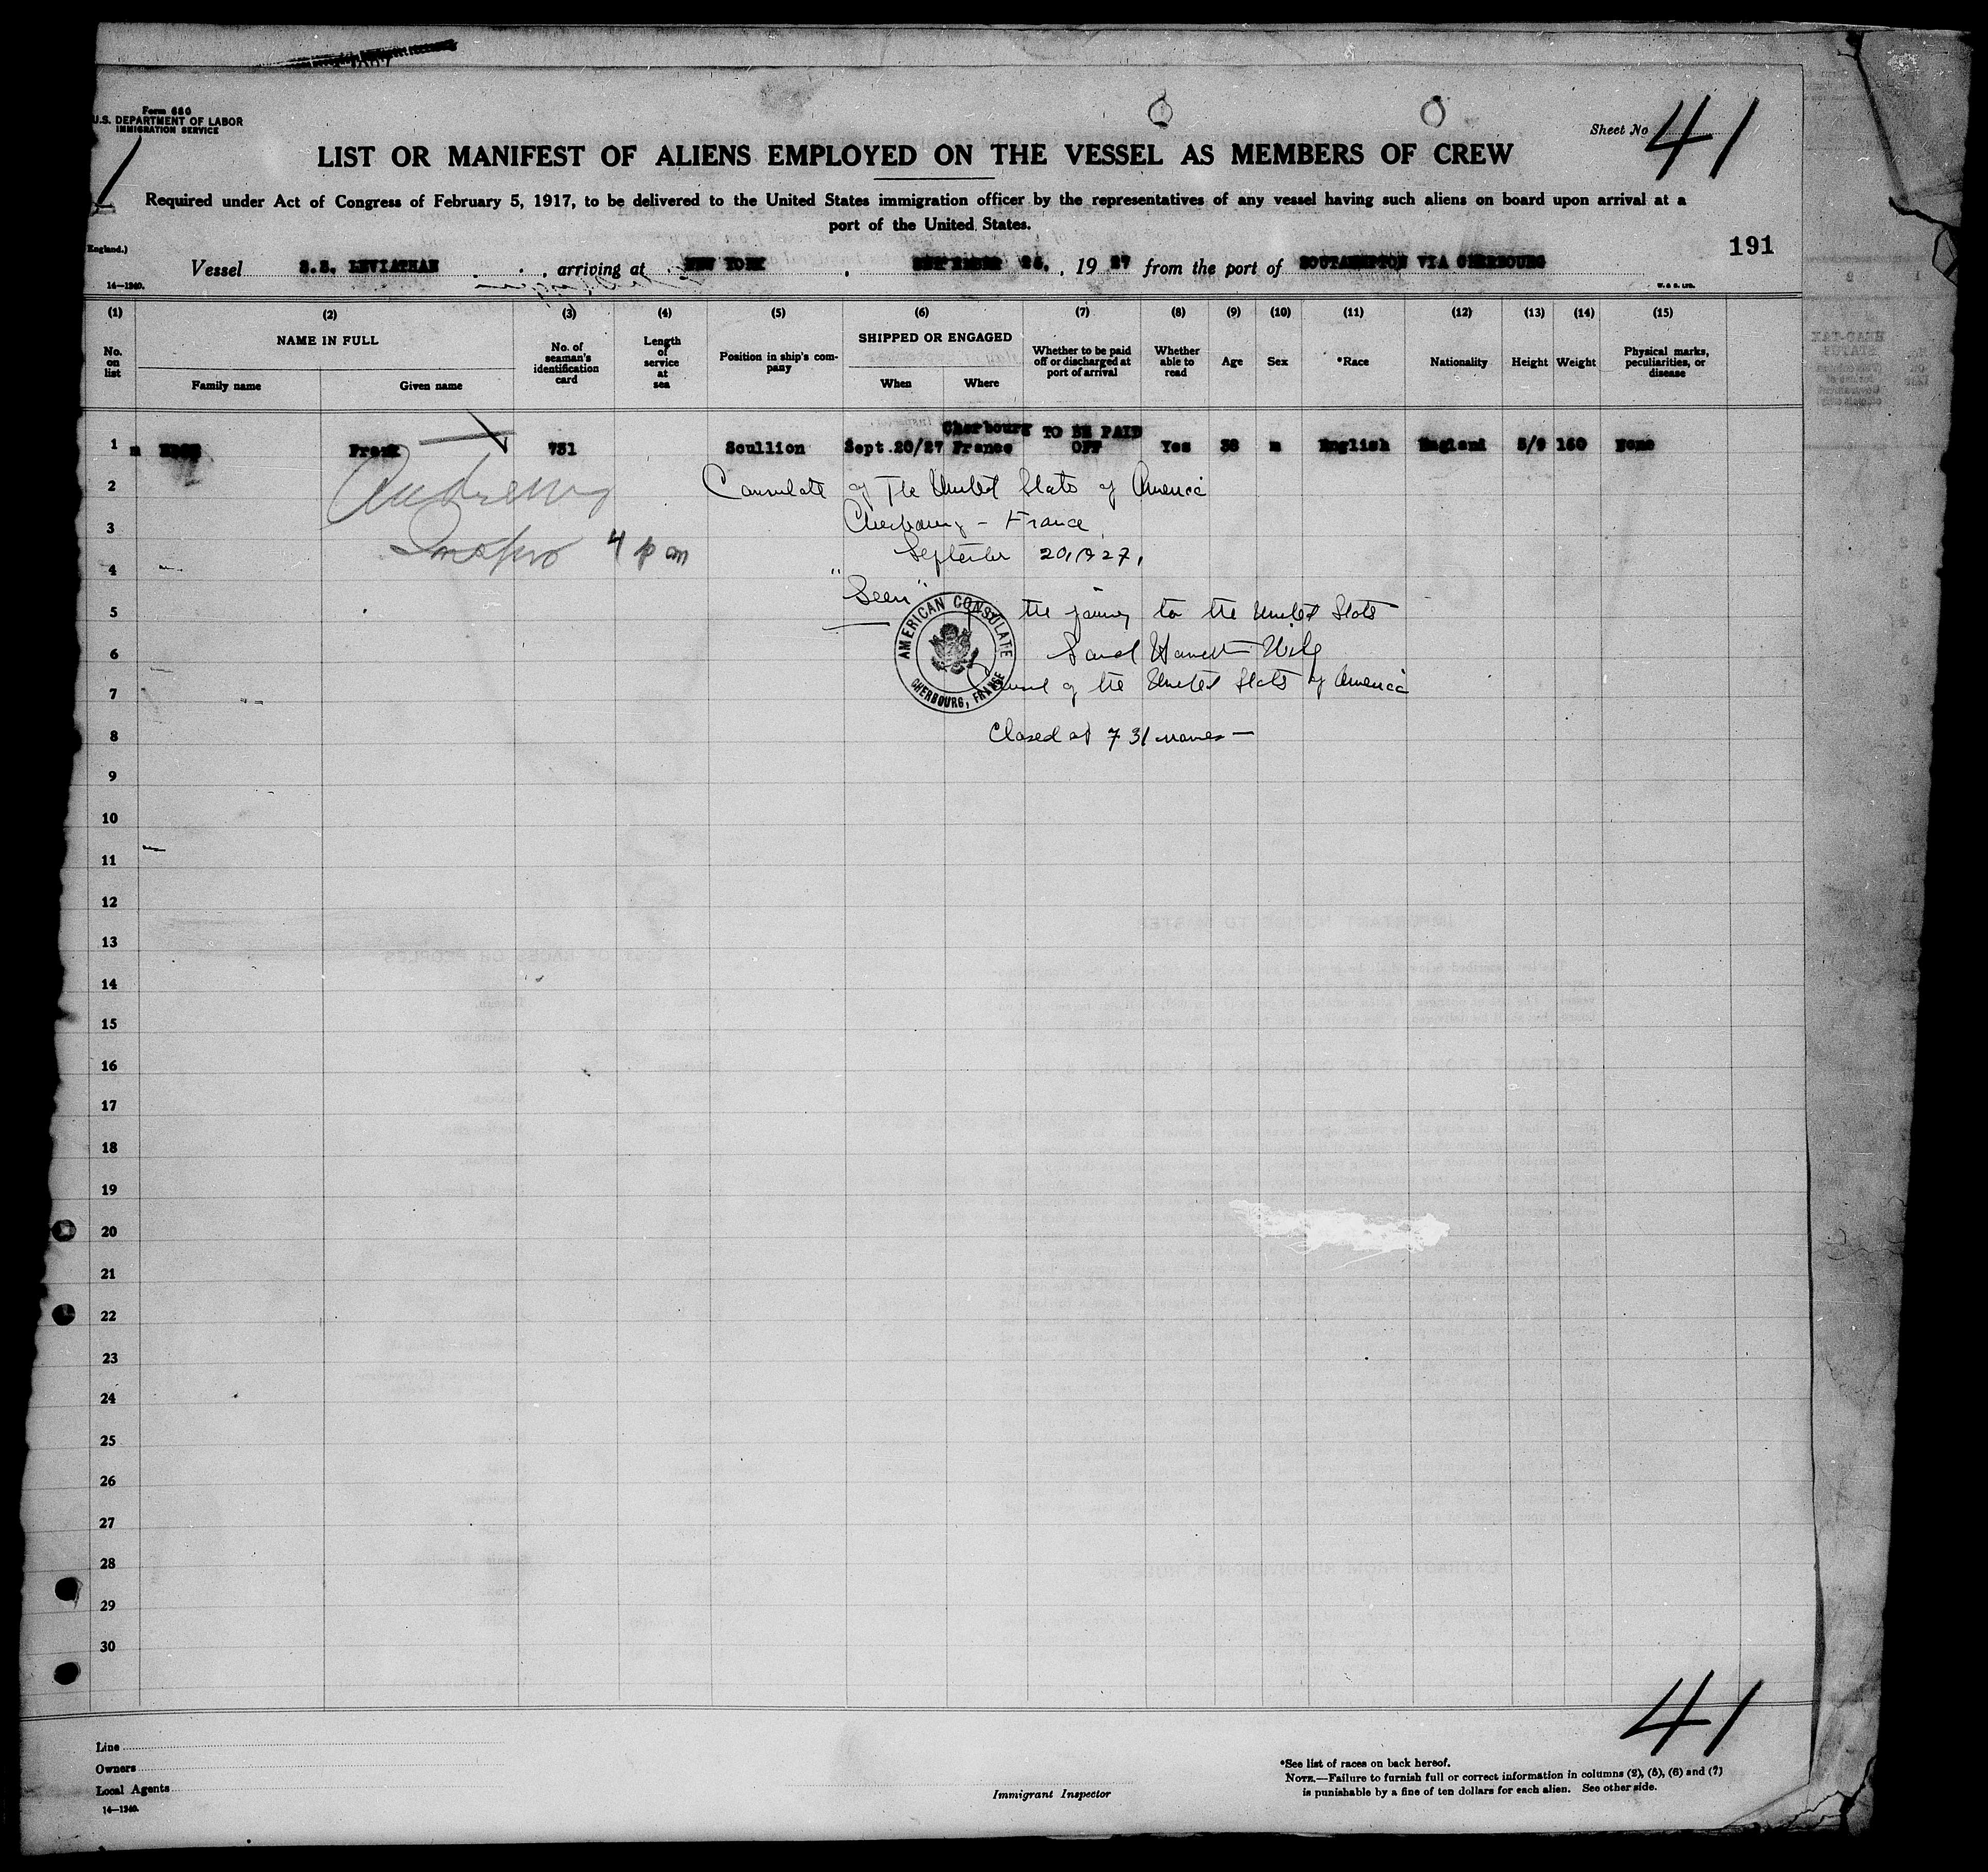 Form 680
U.S. DEPARTMENT OF LABOR
IMMIGRATION SERVICE
Sheet No 41
LIST OR MANIFEST OF ALIENS EMPLOYED ON THE VESSEL AS MEMBERS OF CREW
Required under Act of Congress of February 5, 1917, to be delivered to the United States immigration officer by the representatives of any vessel having such aliens on board upon arrival at a
port of the United States.
England.)
191
Vessel S.S. LEVIATHAN, arriving at NEW YORK, SEPTEMBER 26, 1927 from the port of SOUTHAMPTON VIA CHERBOURG
14—1240.
W. & S. LTD.
(1) (2) (3) (4) (5) (6) (7) (8) (9) (10) (11) (12) (13) (14) (15)
No. on list
NAME IN FULL
Family name
Given name
No. of seaman's identification card
Length of service at sea
Position in ship's company
SHIPPED OR ENGAGED
When
Where
Whether to be paid off or discharged at port of arrival
Whether able to read
Age
Sex
*Race
Nationality
Height
Weight
Physical marks, peculiarities, or disease
1 m Frank 731 Scullion Sept.20/27 Cherbourg France TO BE PAID OFF Yes 38 m English England 5/9 160 None
2 Consulate of The United States of America
3 Cherbourg - France
4 pm
September 20, 1927,
4
"Seen"
5 the journey to the United States
AMERICAN CONSULATE
CHERBOURG, FRANCE
6
7 Consul of the United States of America
8 Closed at 731 names —
9
10
11
12
13
14
15
16
17
18
19
20
21
22
23
24
25
26
27
28
29
30
41
Line
Owners
Local Agents
14—1240.
Immigrant Inspector
*See list of races on back hereof.
NOTE.—Failure to furnish full or correct information in columns (2), (5), (6) and (7)
is punishable by a fine of ten dollars for each alien. See other side.